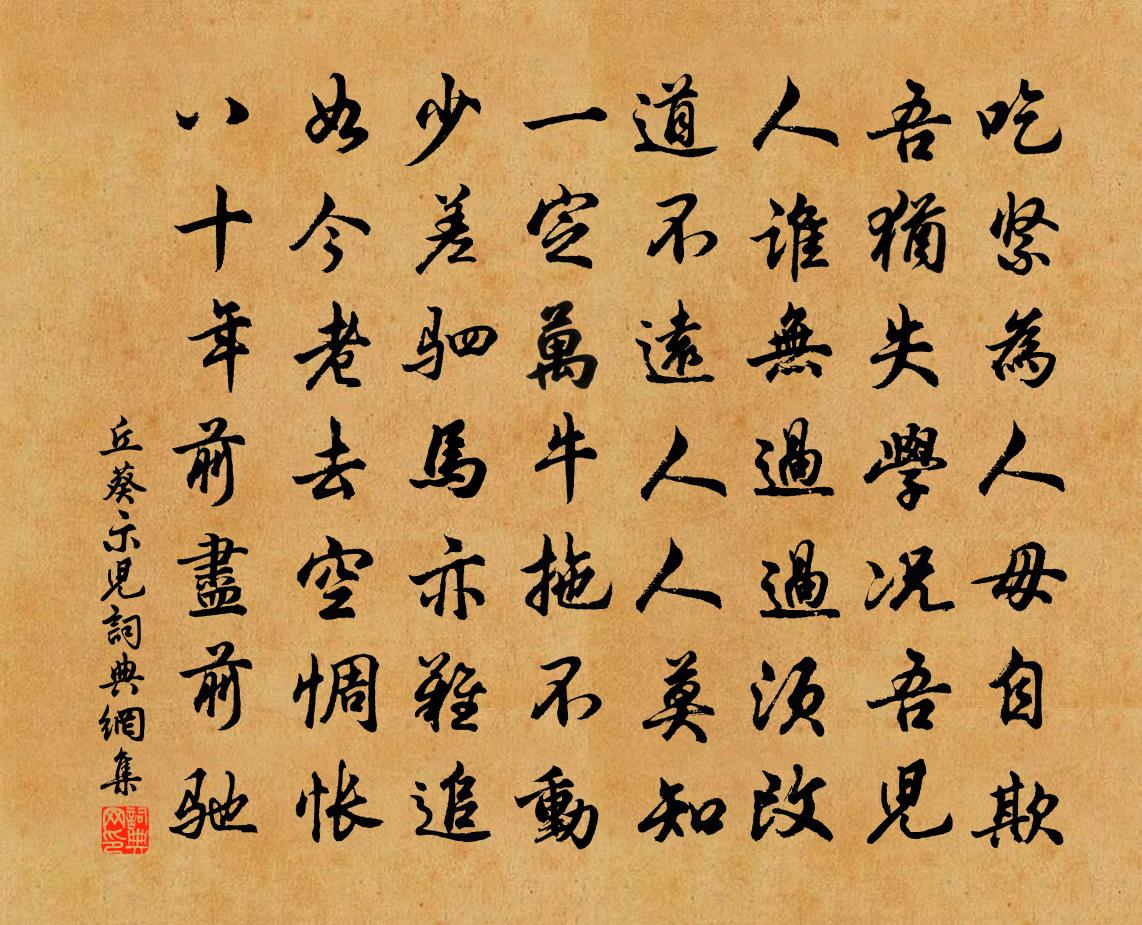 吃緊為人毋自欺
吾猶失學況吾児
人誰無過過須改
道不遠人人莫知
一定萬牛拖不動
少差駟馬亦難追
如今老去空惆悵
八十年前盡前馳
丘葵示児詞典網集
詞典網印